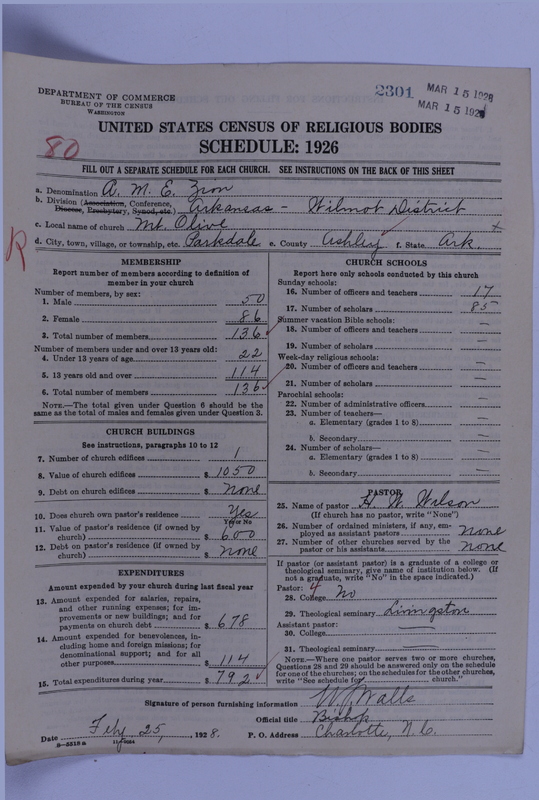 DEPARTMENT OF COMMERCE
BUREAU OF THE CENSUS
WASHINGTON
2301
MAR 15 1928
MAR 15 192
UNITED STATES CENSUS OF RELIGIOUS BODIES
SCHEDULE: 1926
80
FILL OUT A SEPARATE SCHEDULE FOR EACH CHURCH. SEE INSTRUCTIONS ON THE BACK OF THIS SHEET
a. Denomination A. M. E. Zion
b. Division (Association, Conference, Diocese, Presbytery, Synod, etc.) Arkansas - Wilmot District
c. Local name of church Mt. Olive
R
d. City, town, village, or township, etc. Parkdale e. County Ashley f. State Ark.
MEMBERSHIP
Report number of members according to definition of
member in your church
Number of members, by sex:
1. Male 50
2. Female 86
3. Total number of members 136
Number of members under and over 13 years old:
4. Under 13 years of age 22
5. 13 years old and over 114
6. Total number of members 136
NOTE.—The total given under Question 6 should be the
same as the total of males and females given under Question 3.
CHURCH BUILDINGS
See instructions, paragraphs 10 to 12
7. Number of church edifices 1
8. Value of church edifices $ 1050
9. Debt on church edifices $ none
10. Does church own pastor's residence? Yes
Yes or No
11. Value of pastor's residence (if owned by
church) $ 600
12. Debt on pastor's residence (if owned by
church) $ none
EXPENDITURES
Amount expended by your church during last fiscal year
13. Amount expended for salaries, repairs,
and other running expenses; for im-
provements or new buildings; and for
payments on church debt $ 678
14. Amount expended for benevolences, in-
cluding home and foreign missions; for
denominational support; and for all
other purposes $ 114
15. Total expenditures during year $ 792
CHURCH SCHOOLS
Report here only schools conducted by this church
Sunday schools:
16. Number of officers and teachers 17
17. Number of scholars 85
Summer vacation Bible schools:
18. Number of officers and teachers —
19. Number of scholars —
Week-day religious schools:
20. Number of officers and teachers —
21. Number of scholars —
Parochial schools:
22. Number of administrative officers —
23. Number of teachers—
a. Elementary (grades 1 to 8) —
b. Secondary —
24. Number of scholars—
a. Elementary (grades 1 to 8) —
b. Secondary —
PASTOR
25. Name of pastor H. W. Wilson
(If church has no pastor, write "None")
26. Number of ordained ministers, if any, em-
ployed as assistant pastors none
27. Number of other churches served by the
pastor or his assistants none
If pastor (or assistant pastor) is a graduate of a college or
theological seminary, give name of institution below. (If
not a graduate, write "No" in the space indicated.)
Pastor: 4
28. College No
29. Theological seminary Livingston
Assistant pastor:
30. College —
31. Theological seminary —
NOTE.—Where one pastor serves two or more churches,
Questions 28 and 29 should be answered only on the schedule
for one of the churches; on the schedules for the other churches,
write "See schedule for church."
Signature of person furnishing information W. J. Walls
Official title Bishop
Date Feby 25, 1928. P. O. Address Charlotte, N. C.
8-5518 a